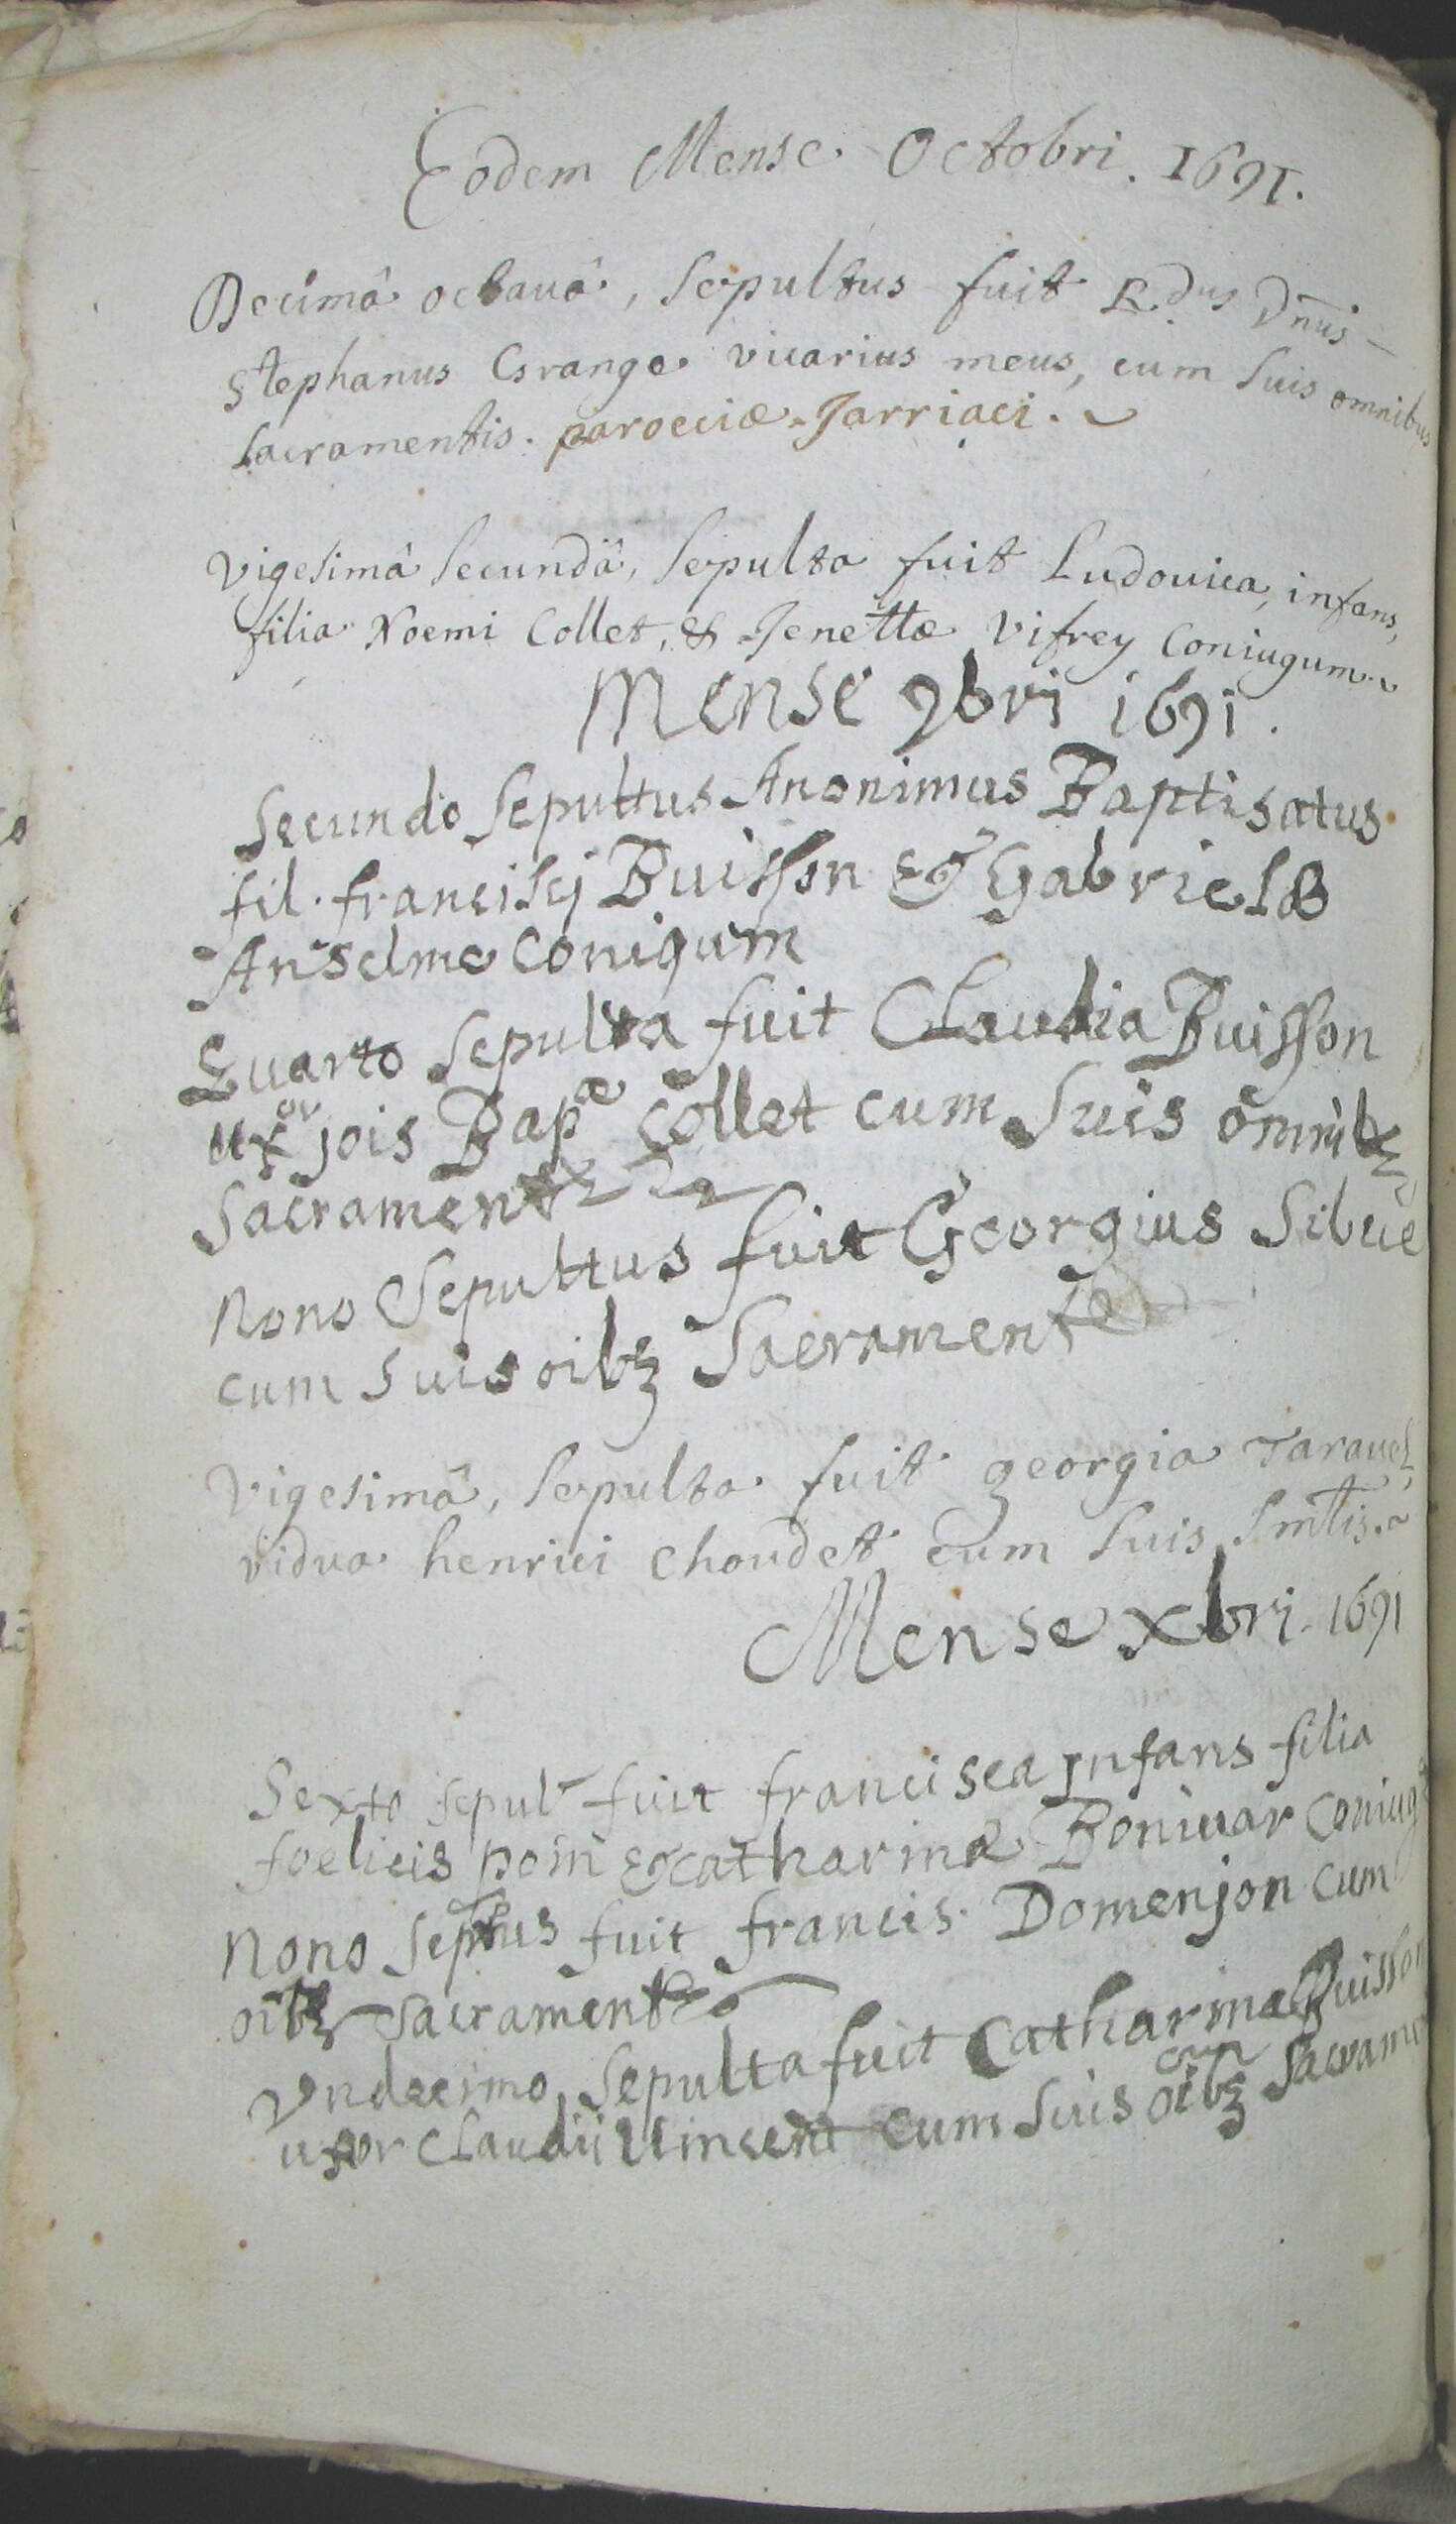 Eodem Mense Octobri. 1691.
Decimâ octauâ, sepultus fuit R.dus Dn̄us
Stephanus Grange vicarius meus, cum suis omnibus
sacramentis. parocciæ Jarriaci.
Vigesimâ secundâ, sepulta fuit Ludouica, infans,
filia Noemi Collet, & Jenettæ Vifrey Coniugum.
Mense 9bri 1691.
Secundo Sepultus Anonimus Baptisatus
fil. francisij Buisson & Gabrielæ
Anselme Conigum
Quarto Sepulta fuit Claudia Buisson
uxor jois Bapæ Collet cum suis omnibz
Sacrament
Nono Sepultus fuit Georgius Sibue
cum suis oibz Sacrament
Vigesimâ, sepulta fuit georgia Tarauel,
vidua henrici choudet cum suis smtis.
Mense xbri 1691
Sexto sepul fuit francisca Infans filia
foelicis & Catharinæ Boniuar Coniug
Nono sepltus fuit francis. Domenjon cum
oibz Sacrament
Vndecimo Sepulta fuit Catharina Buisson
uxor Claudii Vincent cum suis oibz Sacrame